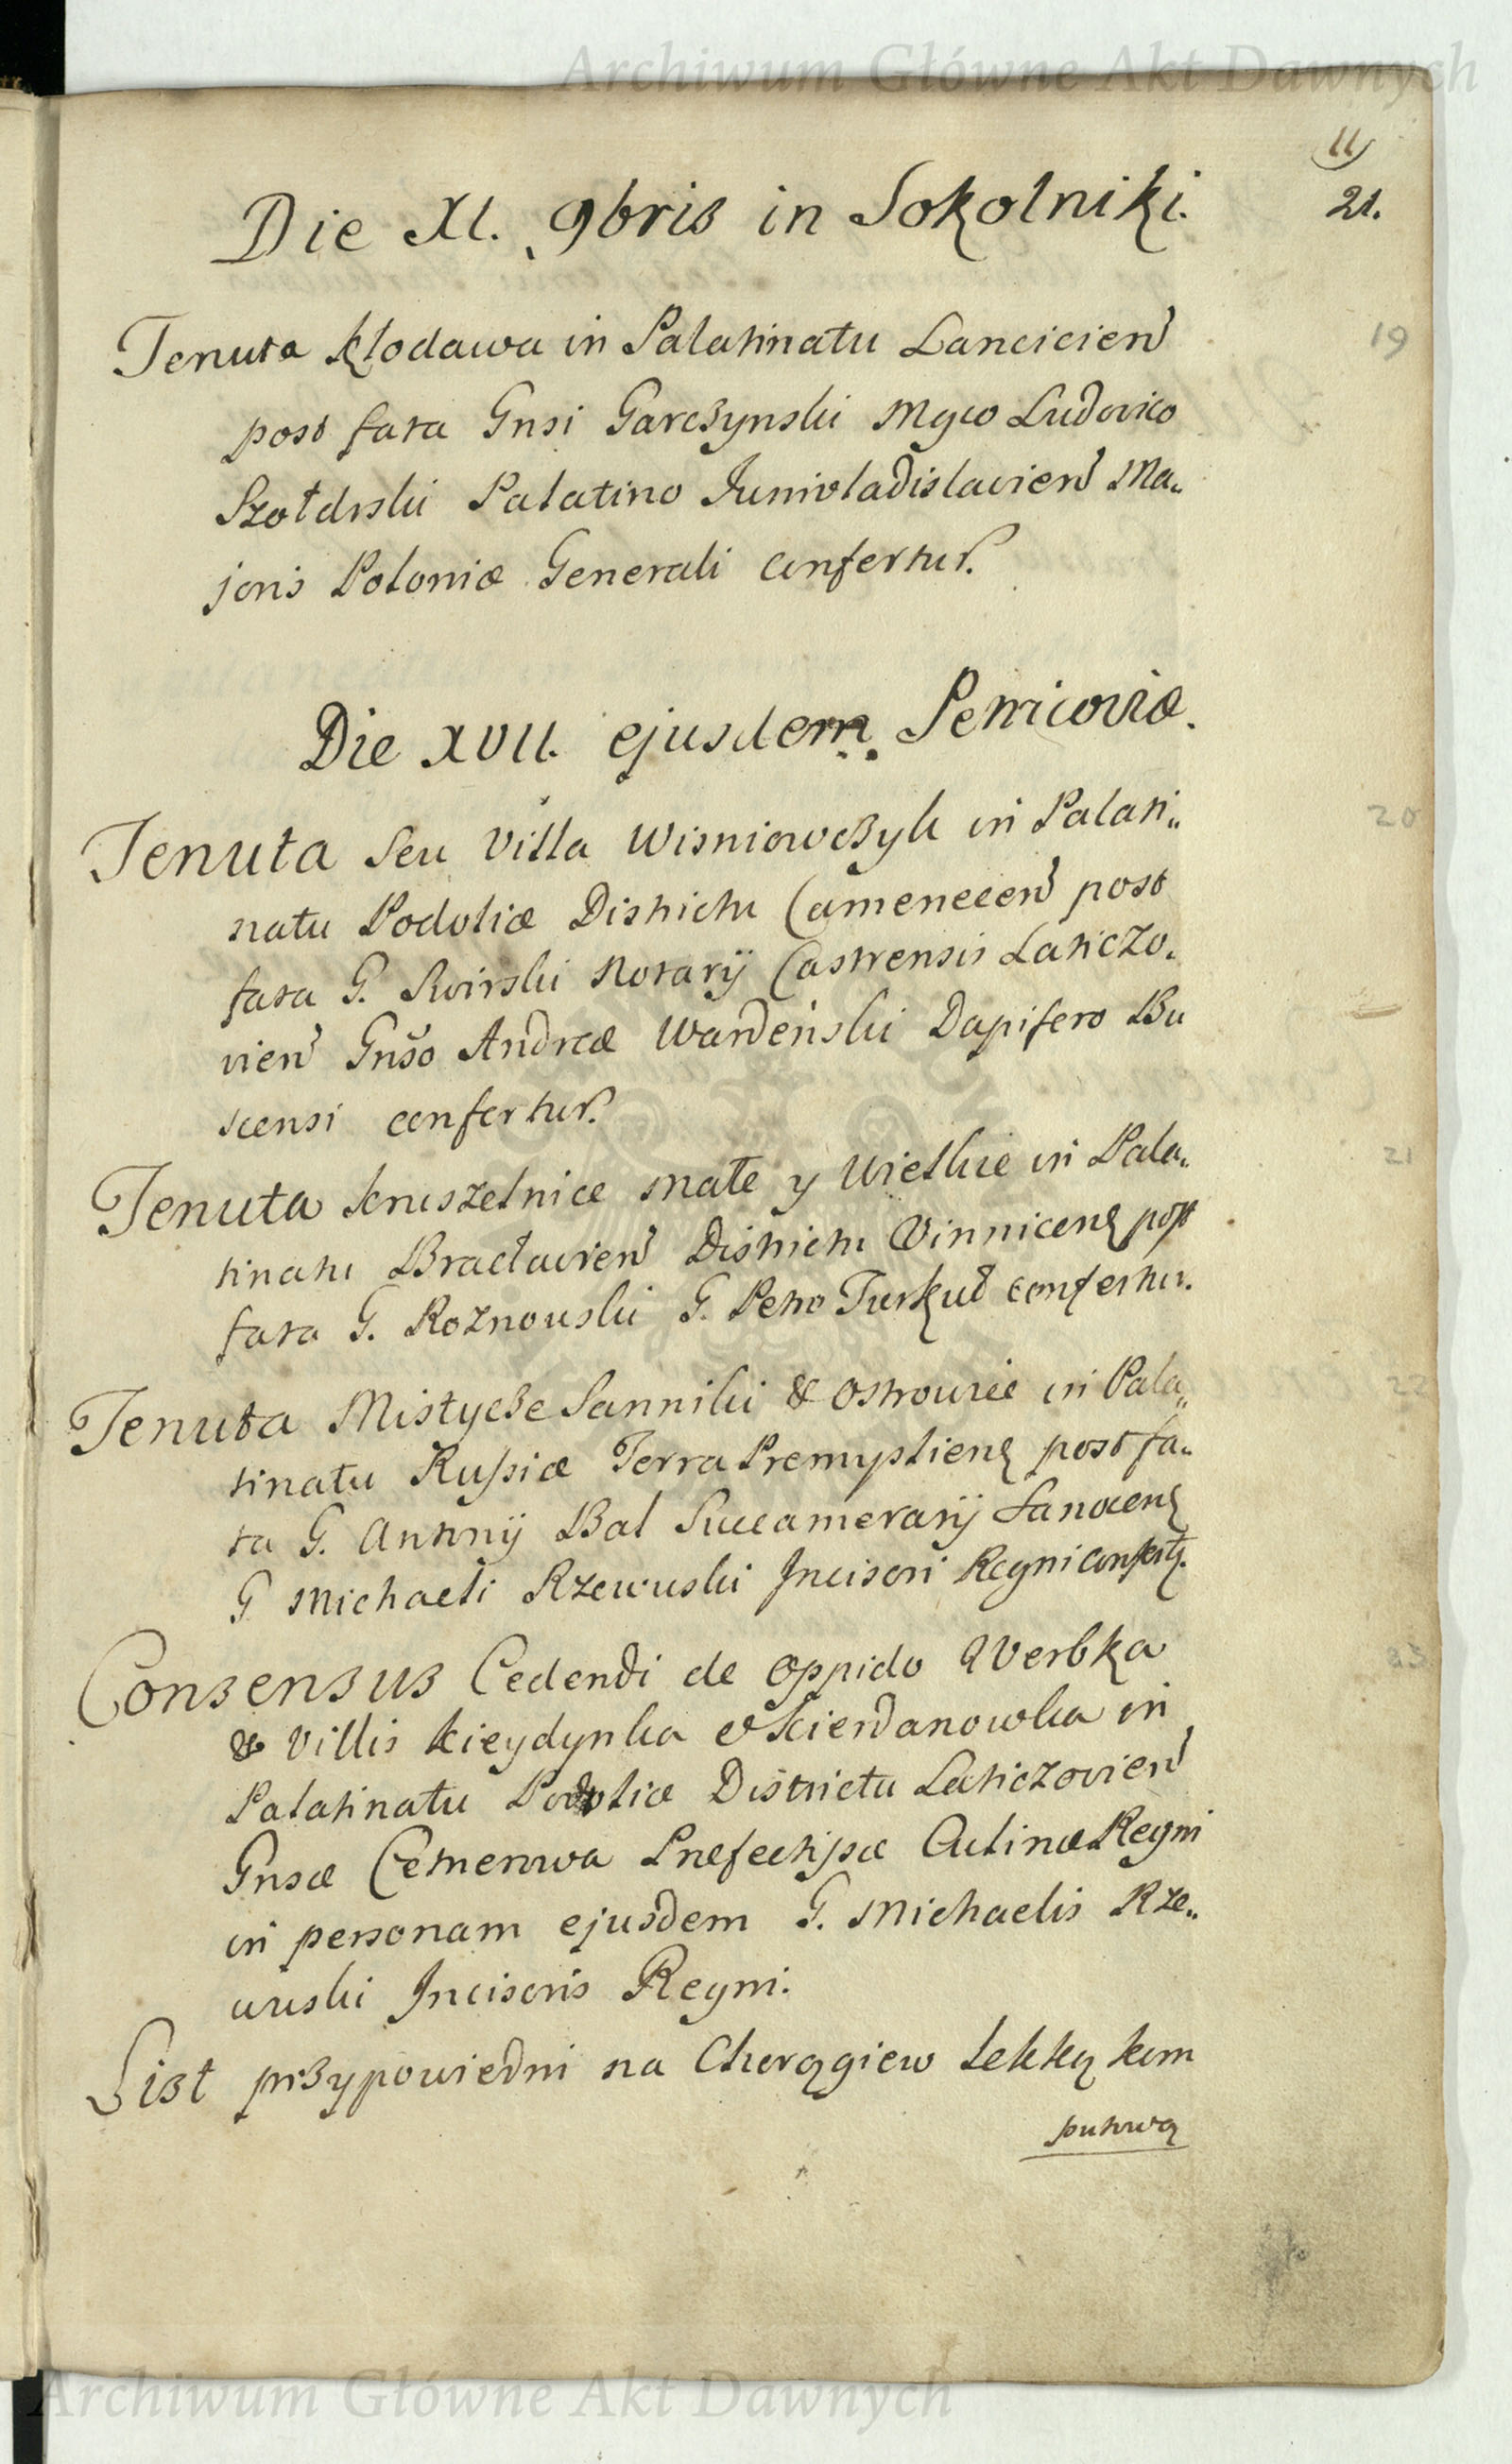 Archiwum Główne Akt Dawnych
11
21.
Die XI. 9bris in Sokolniki.
19
Tenuta Kłodawa in Palatinatu Lancicien
post fata Gnsi Garczynski Mgco Ludovico
Szołdrski Palatino Junivladislavien Ma„
joris Poloniæ Generali confertur.
Die XVII. ejusdem Petricoviæ.
20
Tenuta seu Villa Wisniowczyk in Palati„
natu Podoliæ Districtu Camenecen post
fata G. Swirski Notarij Castrensis Laticzo„
vien Gnso Andreæ Wardeński Dapifero Bu
scensi confertur.
21
Tenuta Kruszelnice Małe y Wielkie in Pala„
tinatu Bracłavien Districtu Vinnicens post
fata G. Roznowski G. Petro Turkuł confertur.
22
Tenuta Mistycze Sanniki & Ostrowie in Pala„
tinatu Russiæ Terra Premysliens post fa„
ta G. Antonij Bal Succamerarij Sanocens
G Michaeli Rzewuski Incisori Regni confertr.
23
Consensus Cedendi de Oppido Werbka
& Villis Kieydynka et Kierdanowka in
Palatinatu Podoliæ Districtu Laticzovien
Gnsæ Cetnerowa Præfectissæ Culinæ Regni
in personam ejusdem G. Michaelis Rze„
wuski Incisoris Regni.
List przypowiedni na Chorągiew lekką kom
putową
Archiwum Główne Akt Dawnych